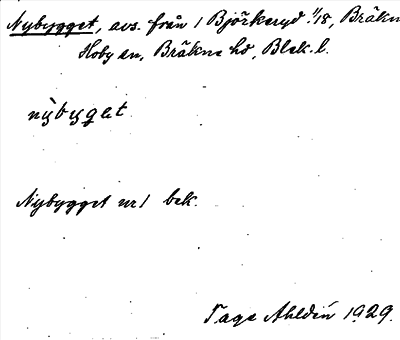 Nybygget, avs. från 1 Björkeryd 1/18, Bräkne
Hoby sn, Bräkne hd, Blek. l.
nỳbygat
Nybygget nr 1 bek.
Tage Ahldén 1929.